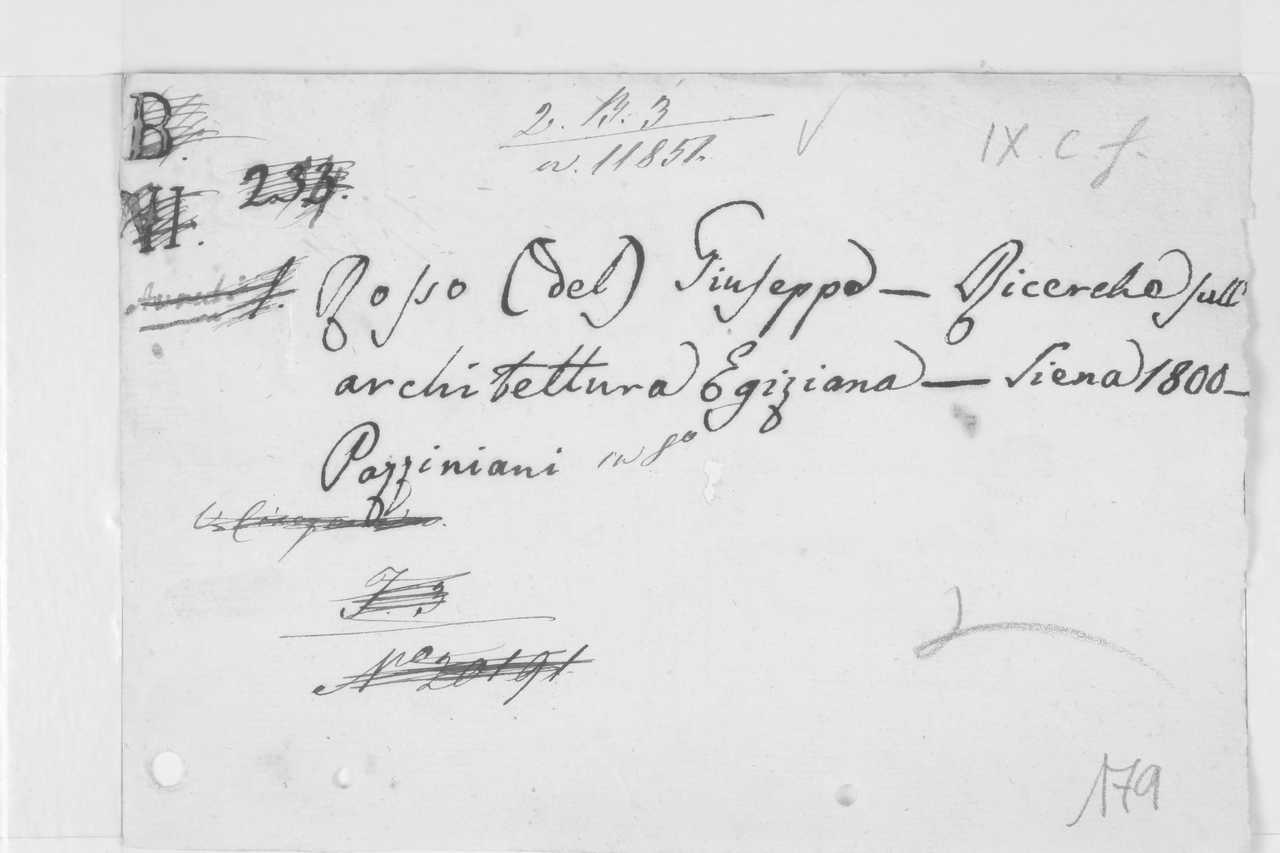 B.
2. B. 3
n. 11851.
IX. c. f.
VI. 233.
Rosso (del) Giuseppe — Ricerche sull'
architettura Egiziana — Siena 1800 —
Pazziniani in 8º
F. 3
Nº 20191
179